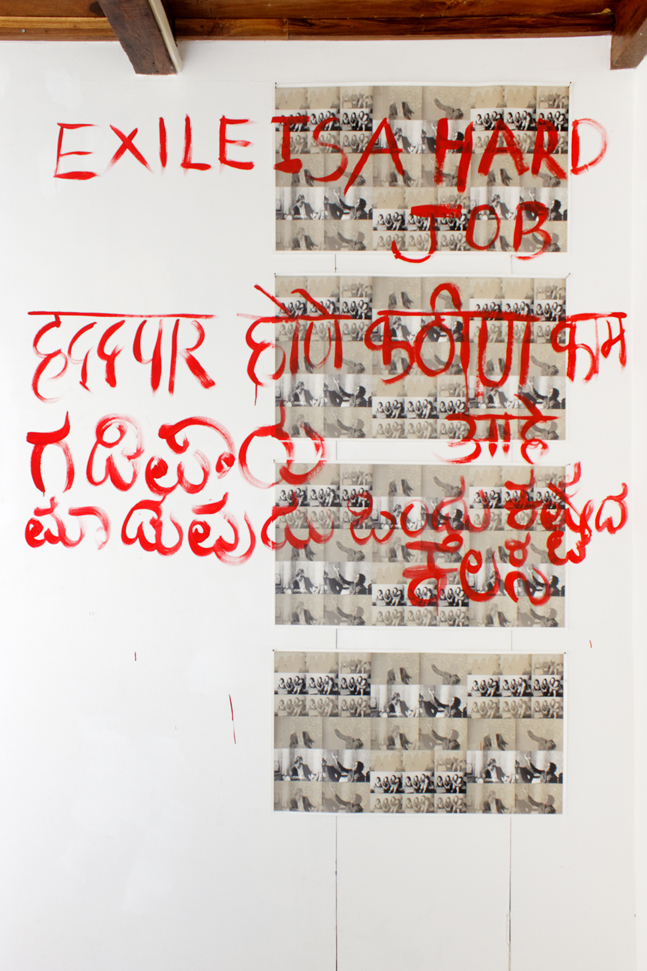 EXILE IS A HARD
JOB
हददपार होणे कठीण काम
आहे
ಗಡಿಪಾರು
ಮಾಡುವುದು ಒಂದು ಕಷ್ಟದ
ಕೆಲಸ